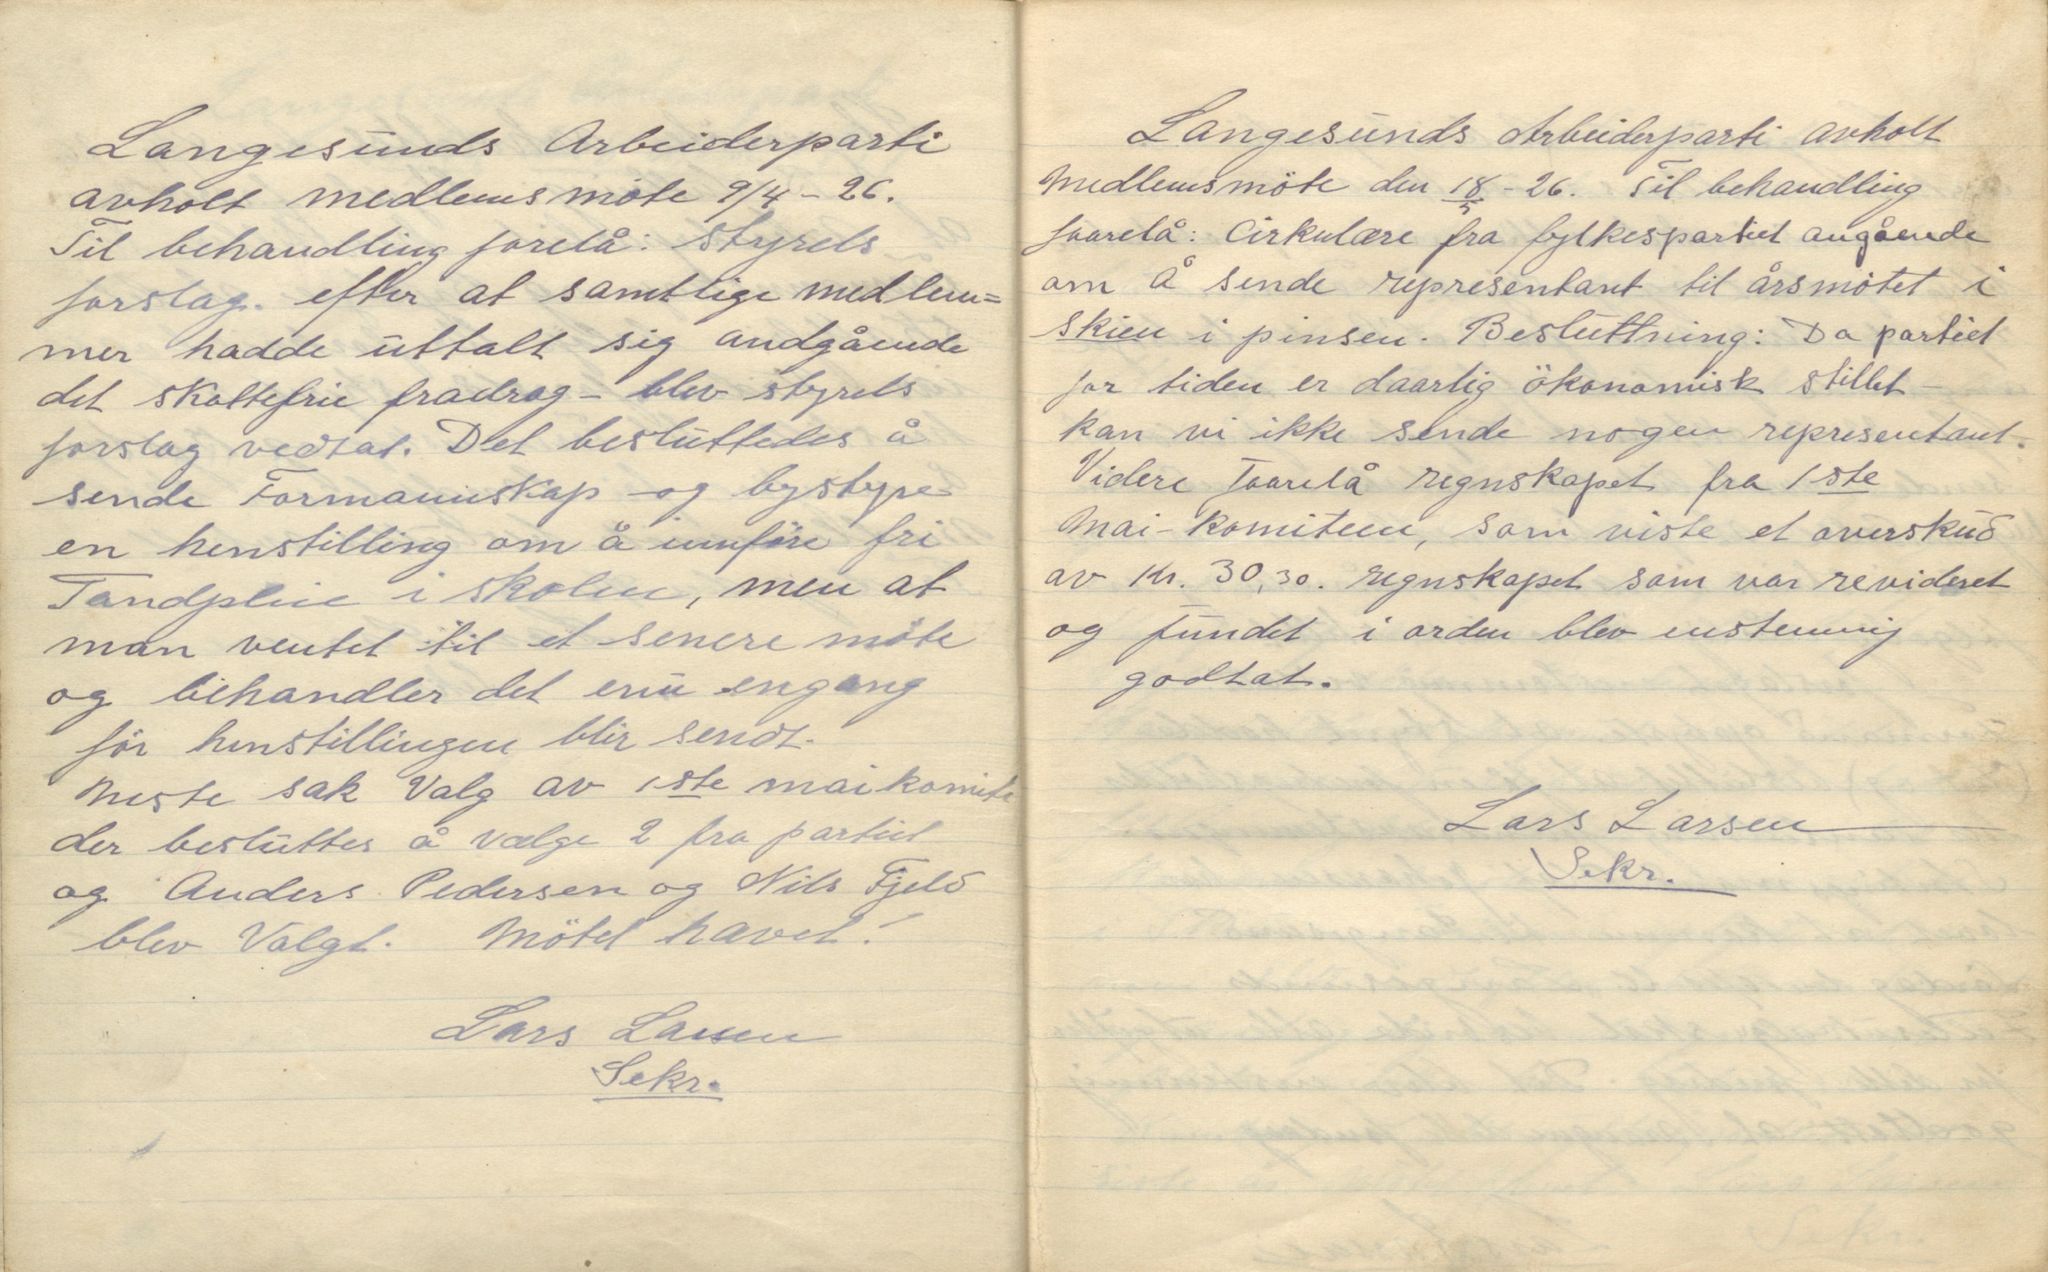 Langesunds Arbeiderparti
avholt medlemsmöte 9/4-26.
Til behandling forelå: styrets
forslag. efter at samtlige medlem=
mer hadde uttalt sig andgående
det skattefrie fradrag - blev styrets
forslag vedtat. Det besluttedes å
sende Formannskap og bystyre
en henstilling om å innföre fri
Tandpleie i skolen, men at
man ventet til et senere möte
og behandler det enu engang
för henstillingen blir sendt.
Neste sak Valg av 1ste maikomite
der besluttes å vælge 2 fra partiet
og Anders Pedersen og Nils Fjeld
blev Valgt. Mötet havet!
Lars Larsen
Sekr.
Langesunds Arbeiderparti avholt
Medlemsmöte den 18/5-26. Til behandling
foorelå: Cirkulære fra fylkespartiet angående
om å sende representant til årsmötet i
Skien i pinsen. Besluttning: Da partiet
for tiden er daarlig ökonomisk stillet
kan vi ikke sende nogen representant.
Videre foorelå regnskapet fra 1ste
Mai-komiteen, som viste et overskud
av Kr. 30,30. regnskapet som var revideret
og fundet i orden blev enstemmig
godtat.
Lars Larsen
Sekr.